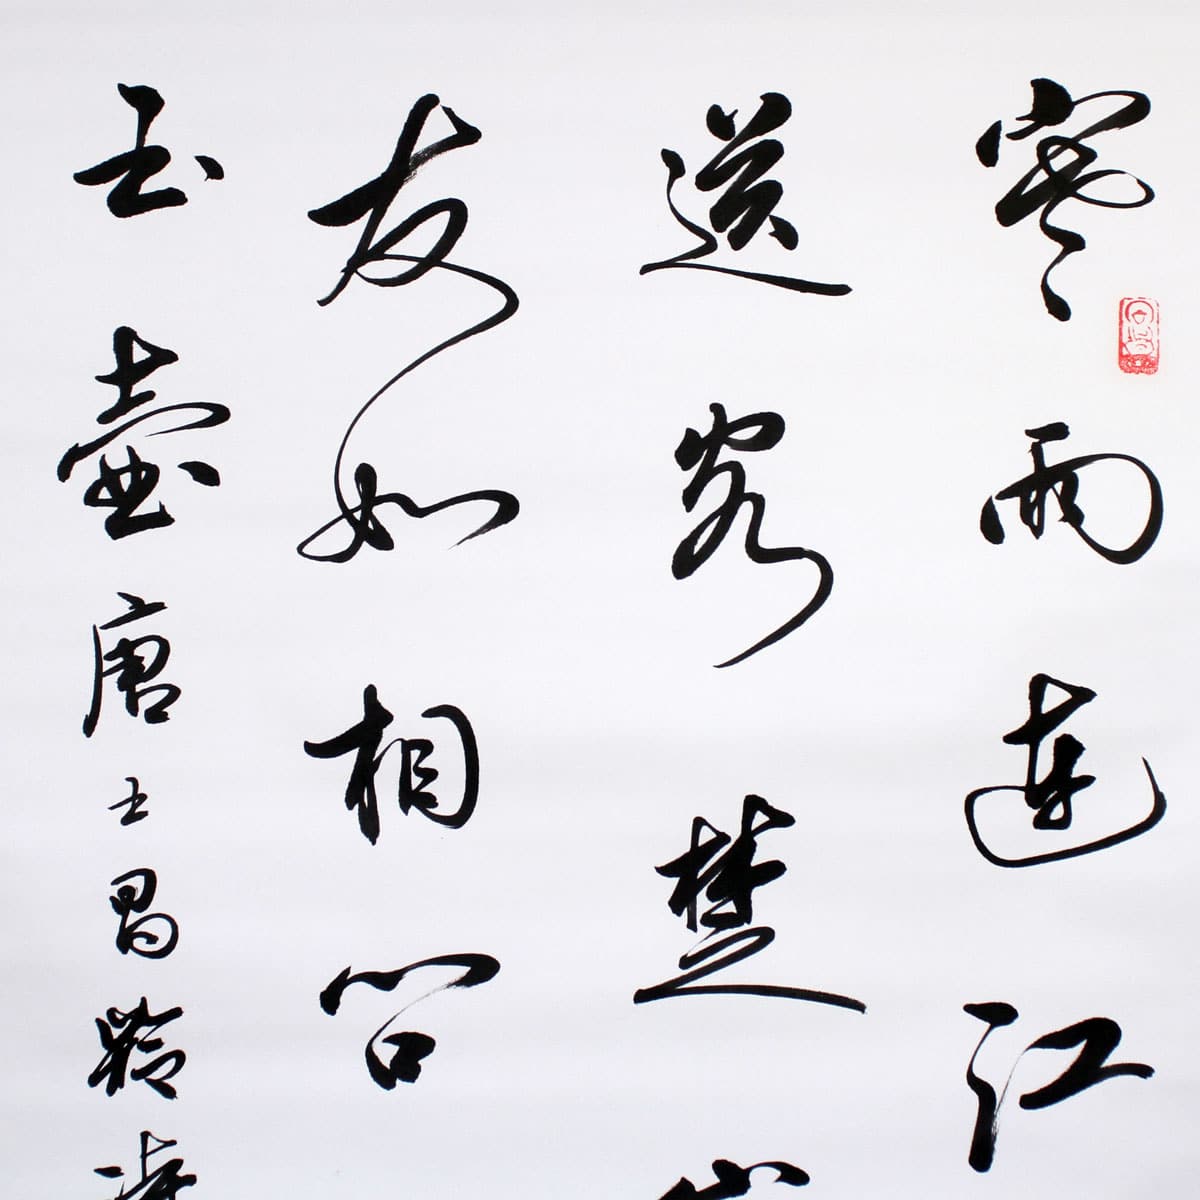 寒雨連江
送客楚山
友如相問
玉壺唐王昌齡